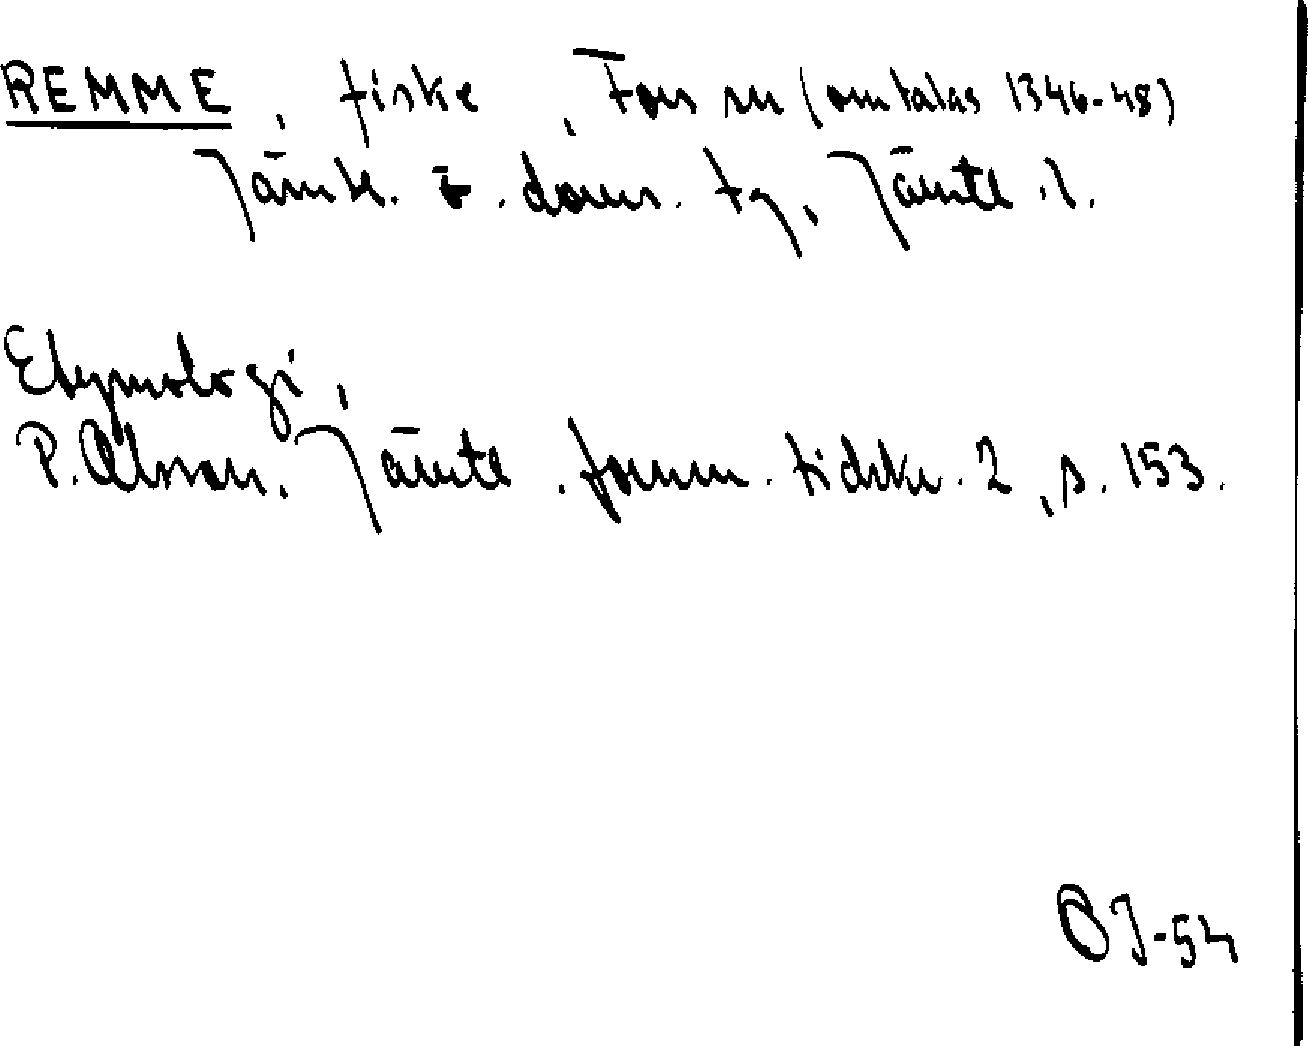 REMME, fiske, Fors sn (omtalas 1346-48)
Jämtl. ö. doms. tg, Jämtl. l.
Etymologi,
P. Olsson. Jämtl. fornm. tidskr. 2, s. 153.
OJ-54